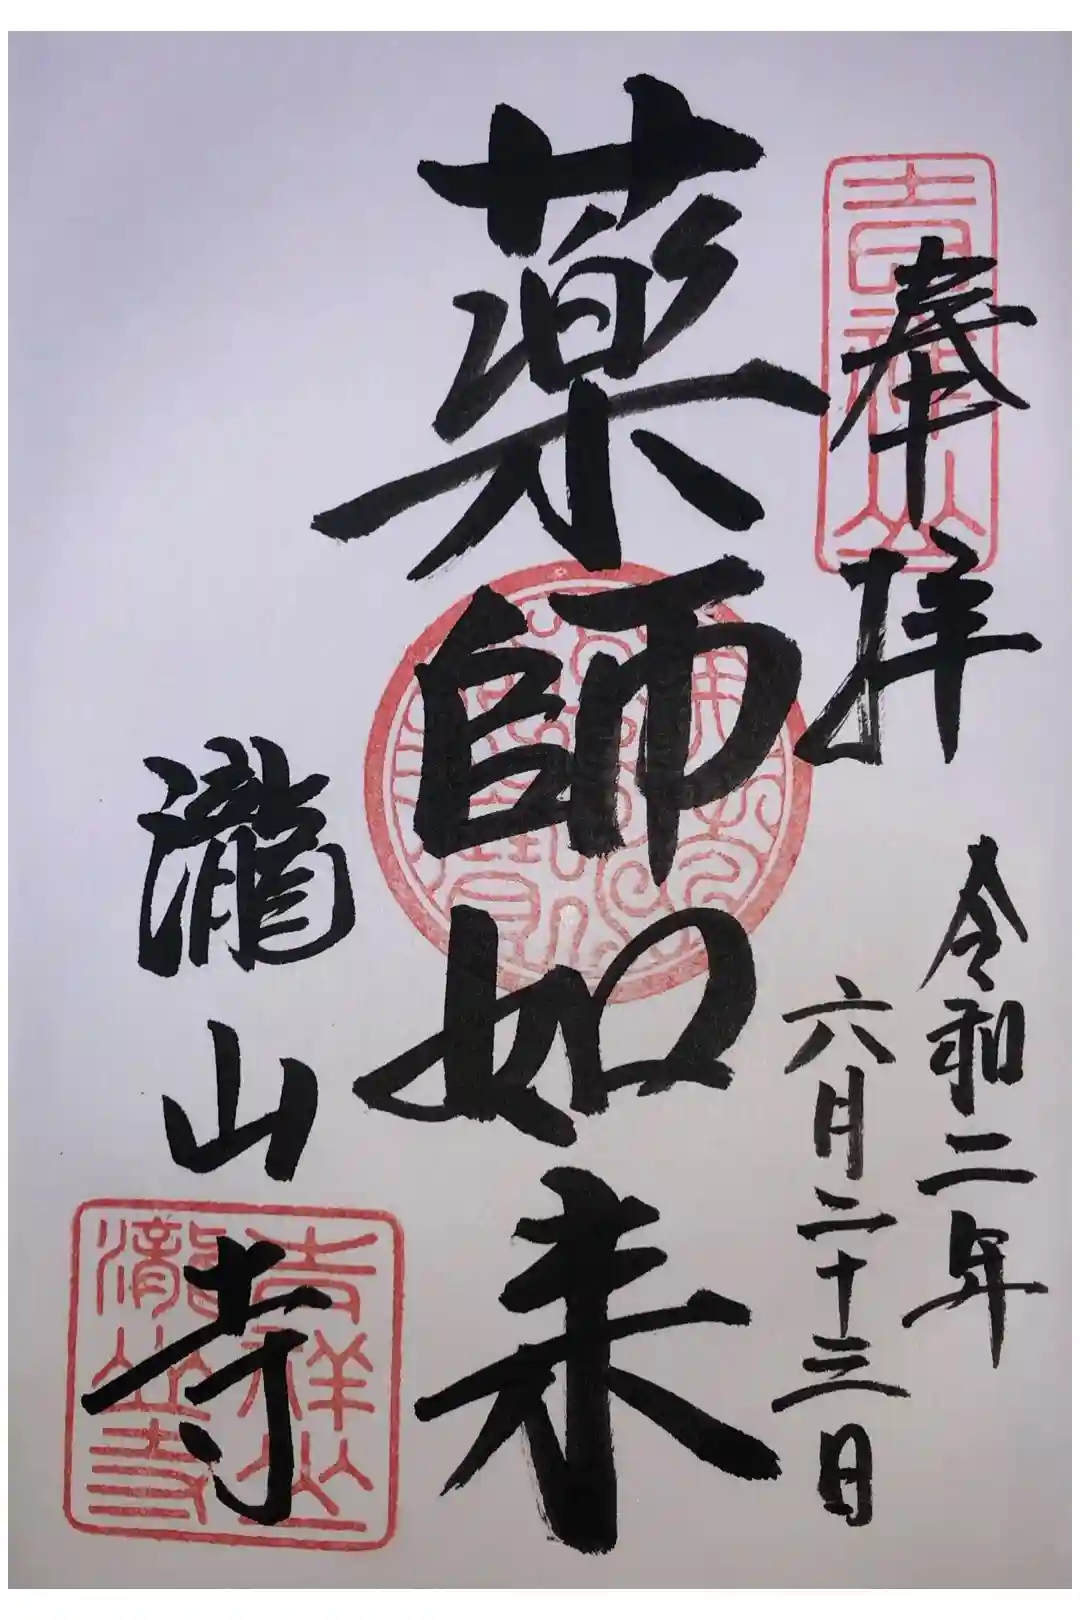 奉拝
令和二年
六月二十三日
薬師如来
瀧山寺
吉祥山
吉祥山
瀧山寺